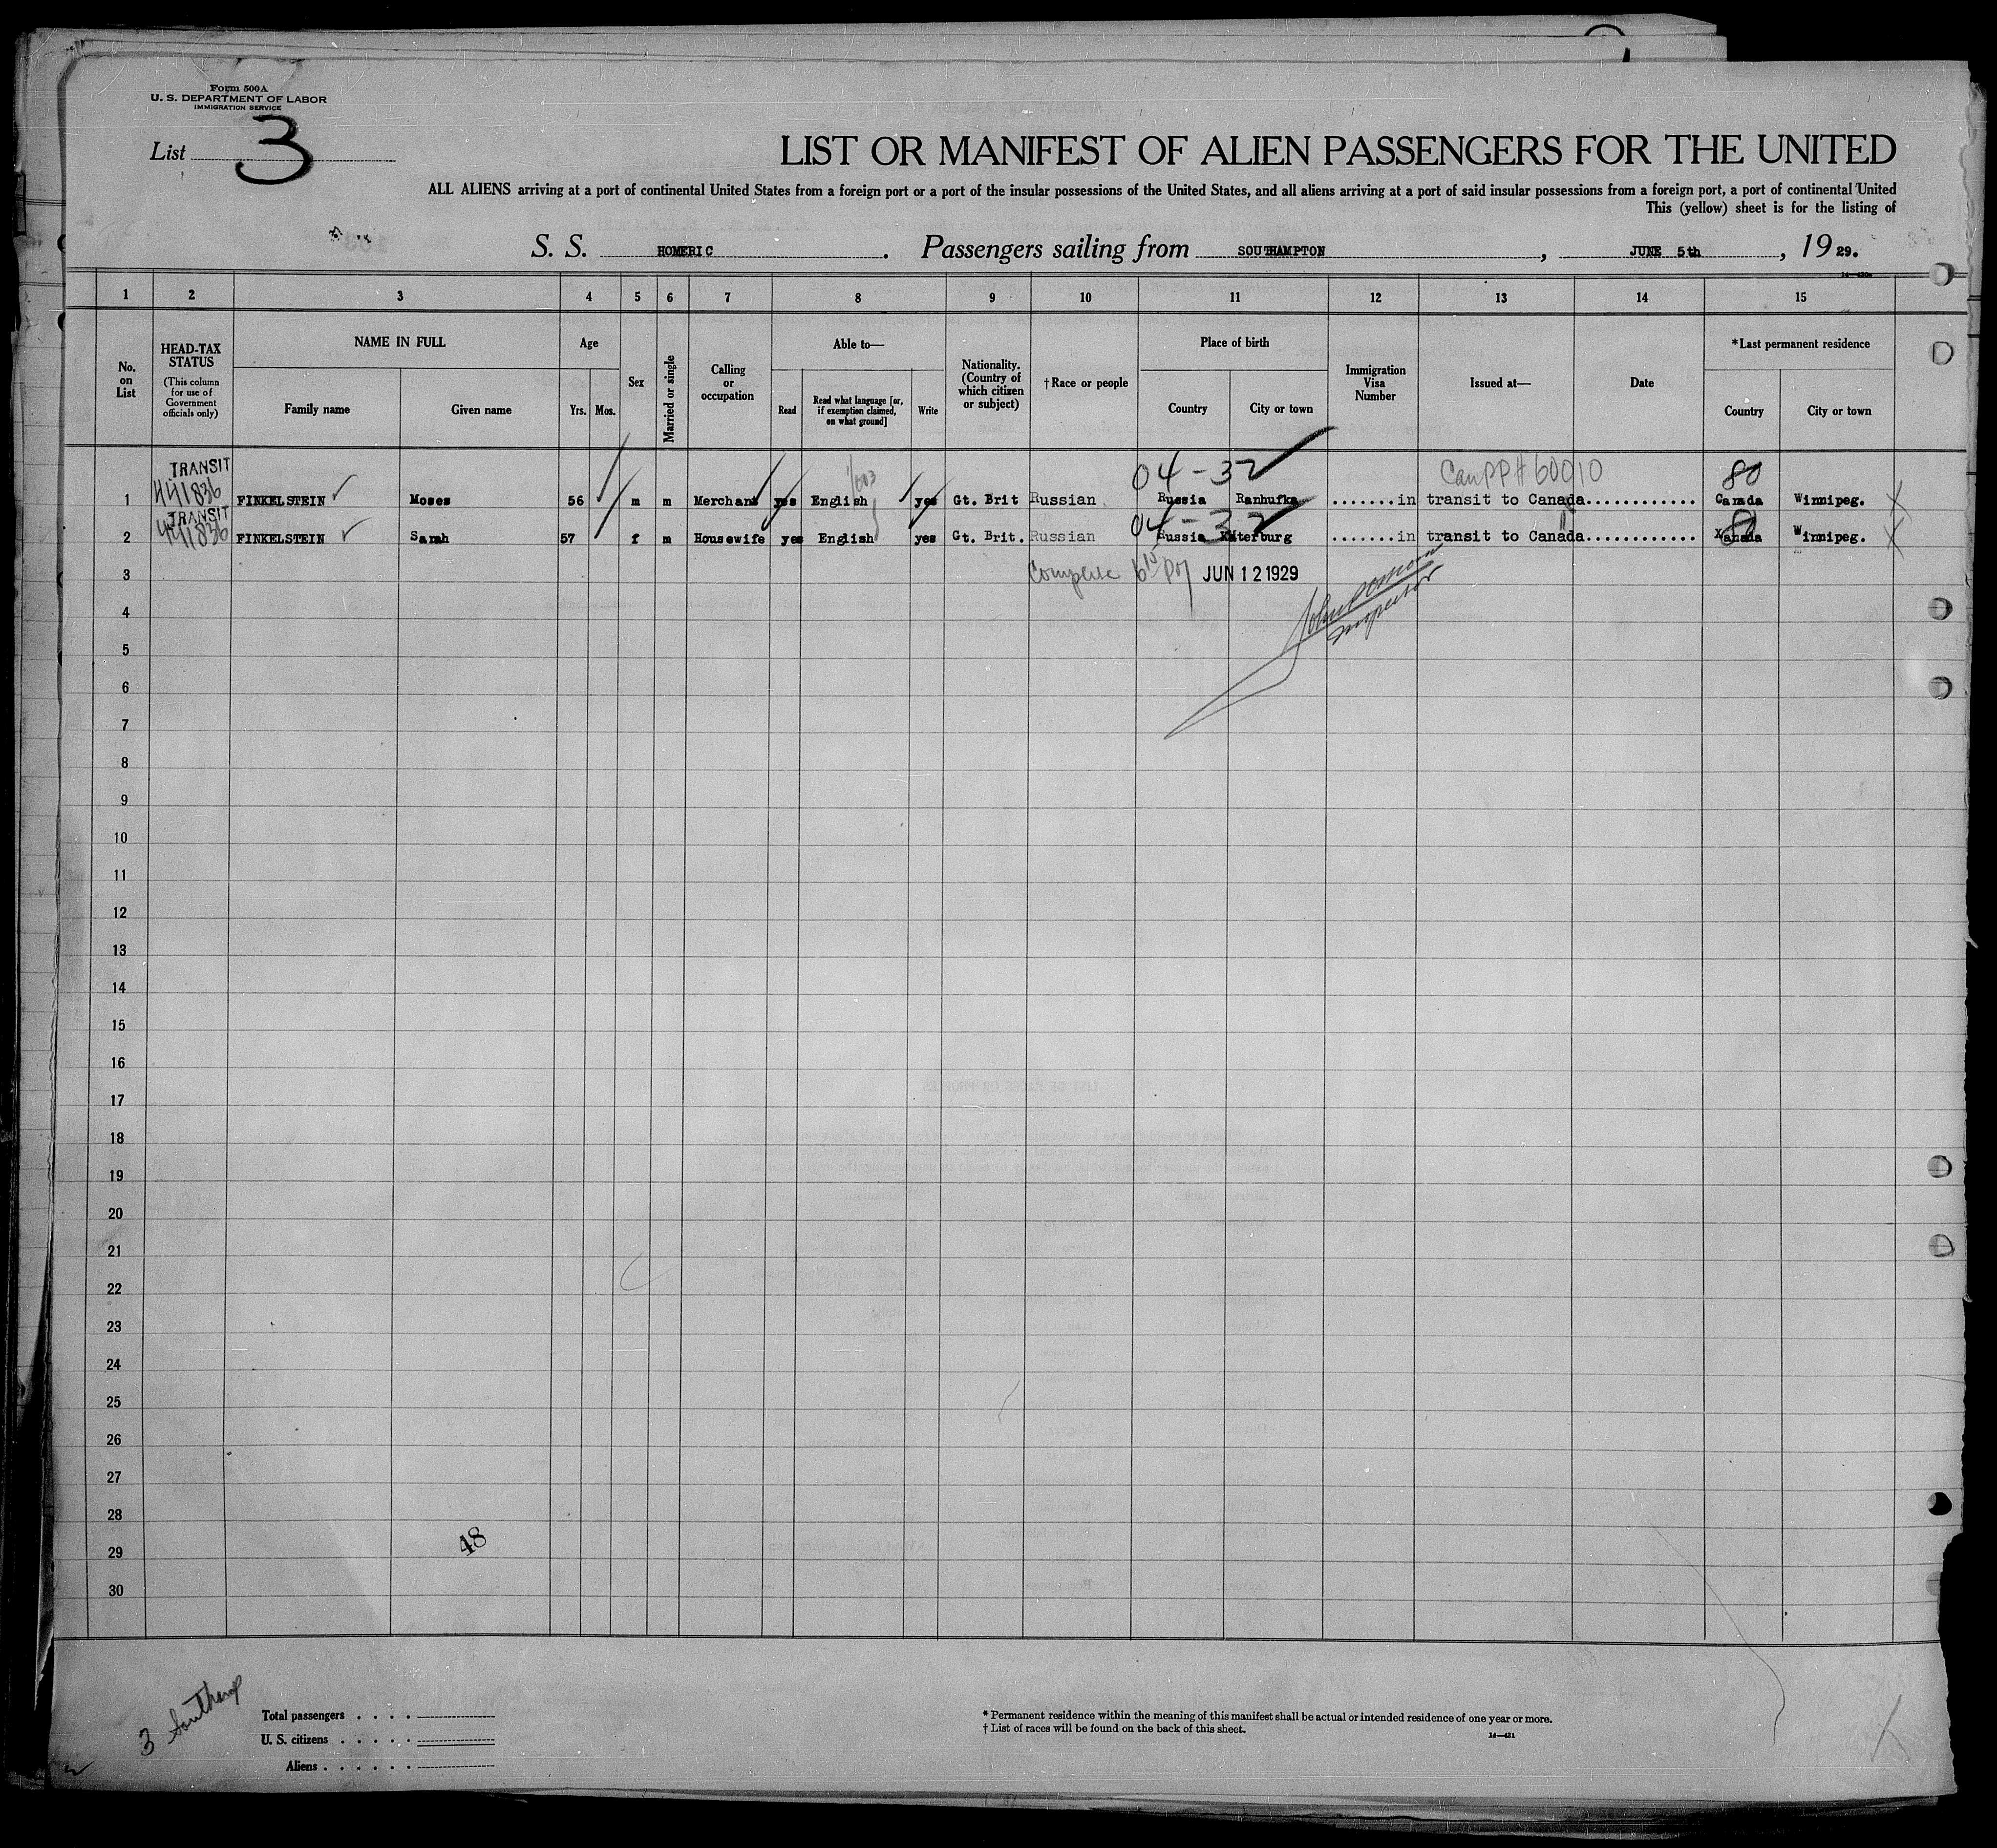 Form 500A
U. S. DEPARTMENT OF LABOR
IMMIGRATION SERVICE
List 3
LIST OR MANIFEST OF ALIEN PASSENGERS FOR THE UNITED
ALL ALIENS arriving at a port of continental United States from a foreign port or a port of the insular possessions of the United States, and all aliens arriving at a port of said insular possessions from a foreign port, a port of continental United
This (yellow) sheet is for the listing of
S. S. HOMERIC . Passengers sailing from SOUTHAMPTON , JUNE 5th , 19 29.
1 2 3 4 5 6 7 8 9 10 11 12 13 14 15
No. on List
HEAD-TAX STATUS
(This column for use of Government officials only)
NAME IN FULL
Family name Given name
Age
Yrs. Mos.
Sex
Married or single
Calling or occupation
Able to—
Read
Read what language [or, if exemption claimed, on what ground]
Write
Nationality. (Country of which citizen or subject)
†Race or people
Place of birth
Country City or town
Immigration Visa Number
Issued at—
Date
*Last permanent residence
Country City or town
TRANSIT 04-32 Can PP# 60910 80
441836
1 FINKELSTEIN Moses 56 m m Merchant yes English yes Gt. Brit Russian Russia Ranhufka .......in transit to Canada............ Canada Winnipeg. X
TRANSIT 04-32 " 80
441836
2 FINKELSTEIN Sarah 57 f m Housewife yes English yes Gt. Brit. Russian Russia .......in transit to Canada............ Xanada Winnipeg. X
3 JUN 12 1929
Inspector
4
5
6
7
8
9
10
11
12
13
14
15
16
17
18
19
20
21
22
23
24
25
26
27
28
29
30
48
3 Southamp
Total passengers . . . .
U. S. citizens . . . . .
Aliens . . . . . .
* Permanent residence within the meaning of this manifest shall be actual or intended residence of one year or more.
† List of races will be found on the back of this sheet.
14—431